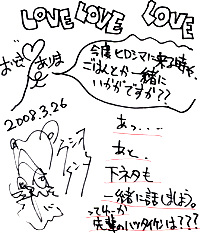 LOVE LOVE LOVE
今度ヒロシマに来た時や、
ごはんとか一緒に
いかがですか??
2008.3.26
あっ...
あと、
下ネタも
一緒に話しましょう。
ってゆーか
先輩のハツタイケンは???